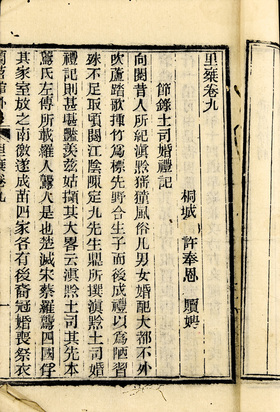 里椉卷九
桐城　許奉恩
節錄土司婚禮記
向閱昔人所紀滇黔猺獞風俗凡男女婚配大都不外
吹蘆踏歌揷竹為標先野合生子而後成禮以為陋習
殊不足取頃閱江陰陳定九先生鼎所撰滇黔土司婚
禮記則甚堪豔羨茲姑擷其大畧云滇黔土司其先本
鸞氏左傳所載羅人鸞人是也楚滅宋蔡羅鸞四國俘
其家室放之南徼遂成苗四家各有後裔冠婚喪祭衣